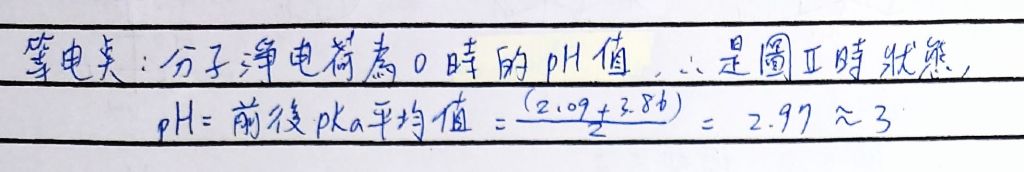 等电点:分子淨电荷為0時的pH值,∴是圖Ⅱ時狀態,
pH=前後pKa平均值=(2.09+3.86)/2=2.97≈3